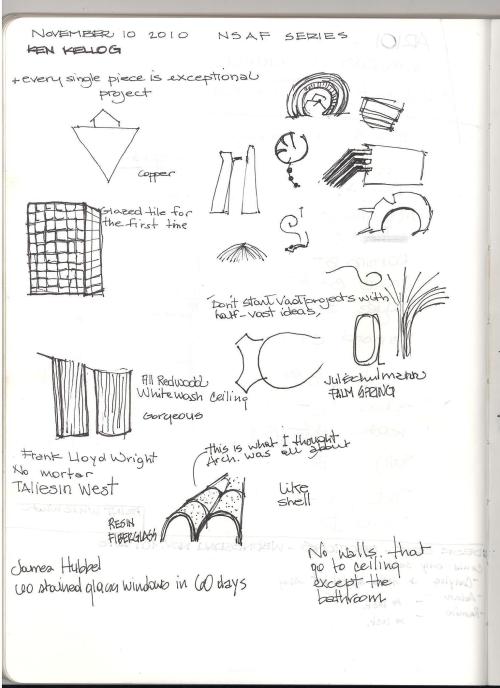 NOVEMBER 10 2010 NSAF SERIES
KEN KELLOG
+ every single piece is exceptional
project
copper
Glazed tile for
the first time
"Don't start vast projects with
half-vast ideas,
All Redwood
Whitewash ceiling
Gorgeous
Julschulmann
PALM SPRING
Frank Lloyd Wright
No mortar
Taliesin West
this is what I thought
Arch. was all about
RESIN
FIBERGLASS
Like
shell
James Hubbel
60 stained glass windows in 60 days
No walls that
go to ceiling
except the
bathroom